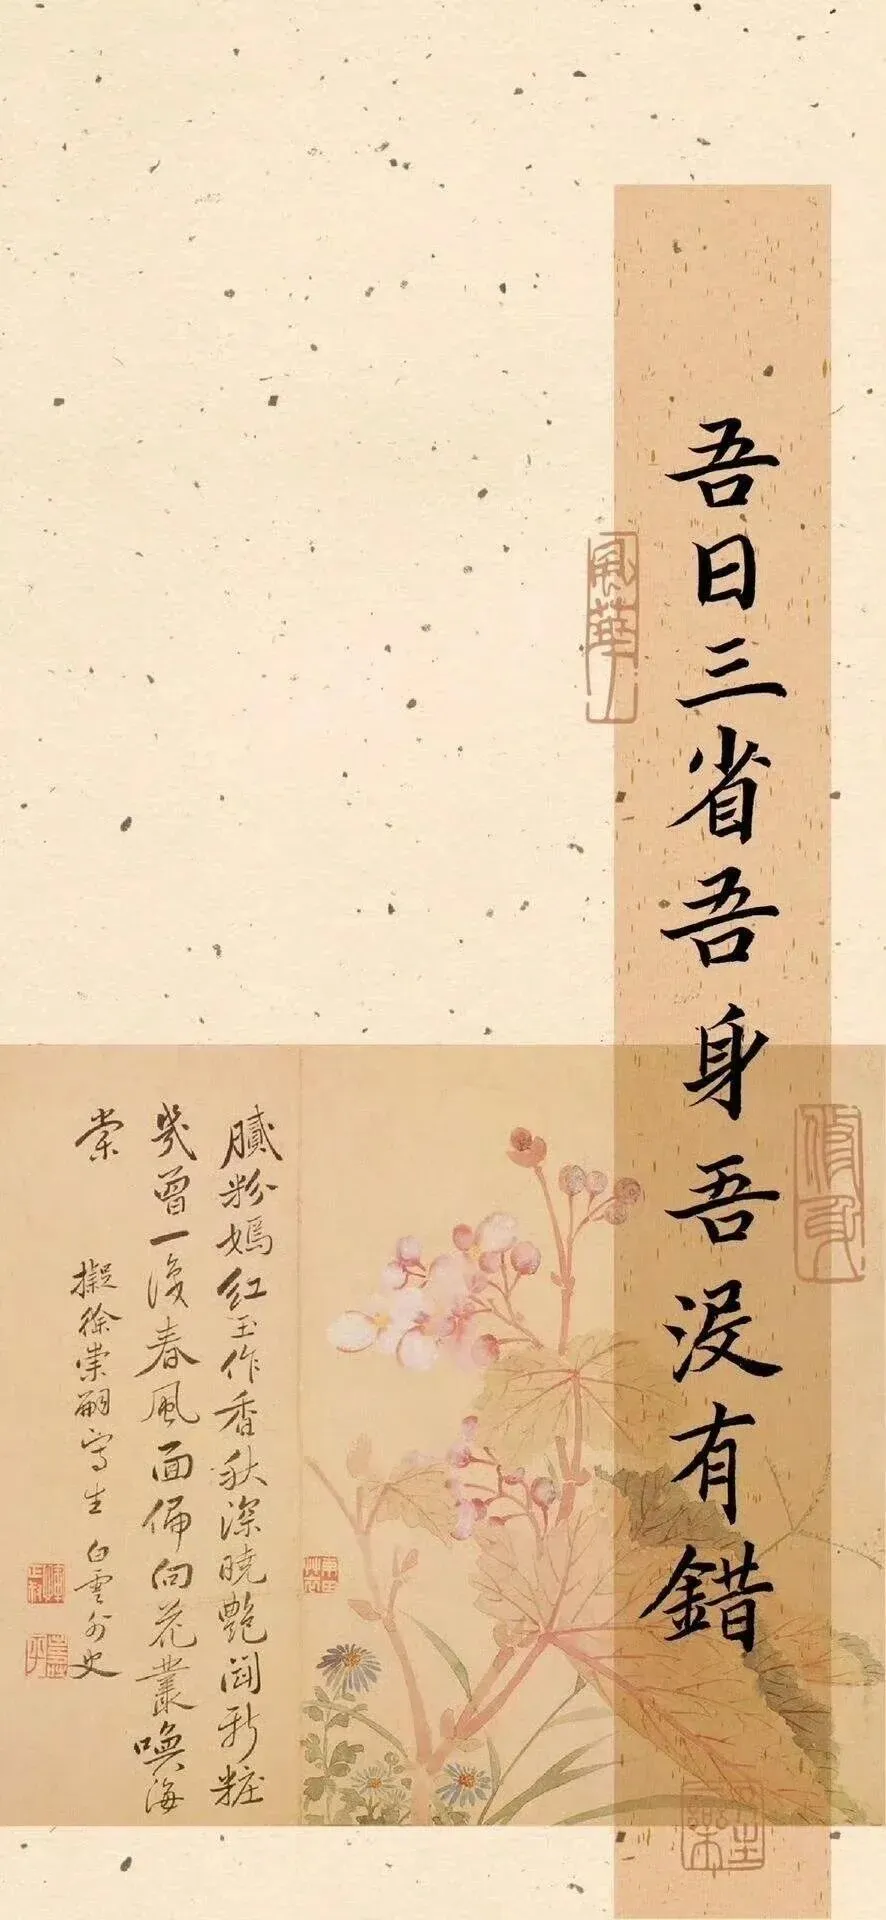 吾日三省吾身吾没有錯
風華
修身
膩粉嫣紅玉作香秋深曉艷鬪新粧
幾曾一春風面偏向花叢喚海
棠
擬徐崇嗣寫生 白雲外史